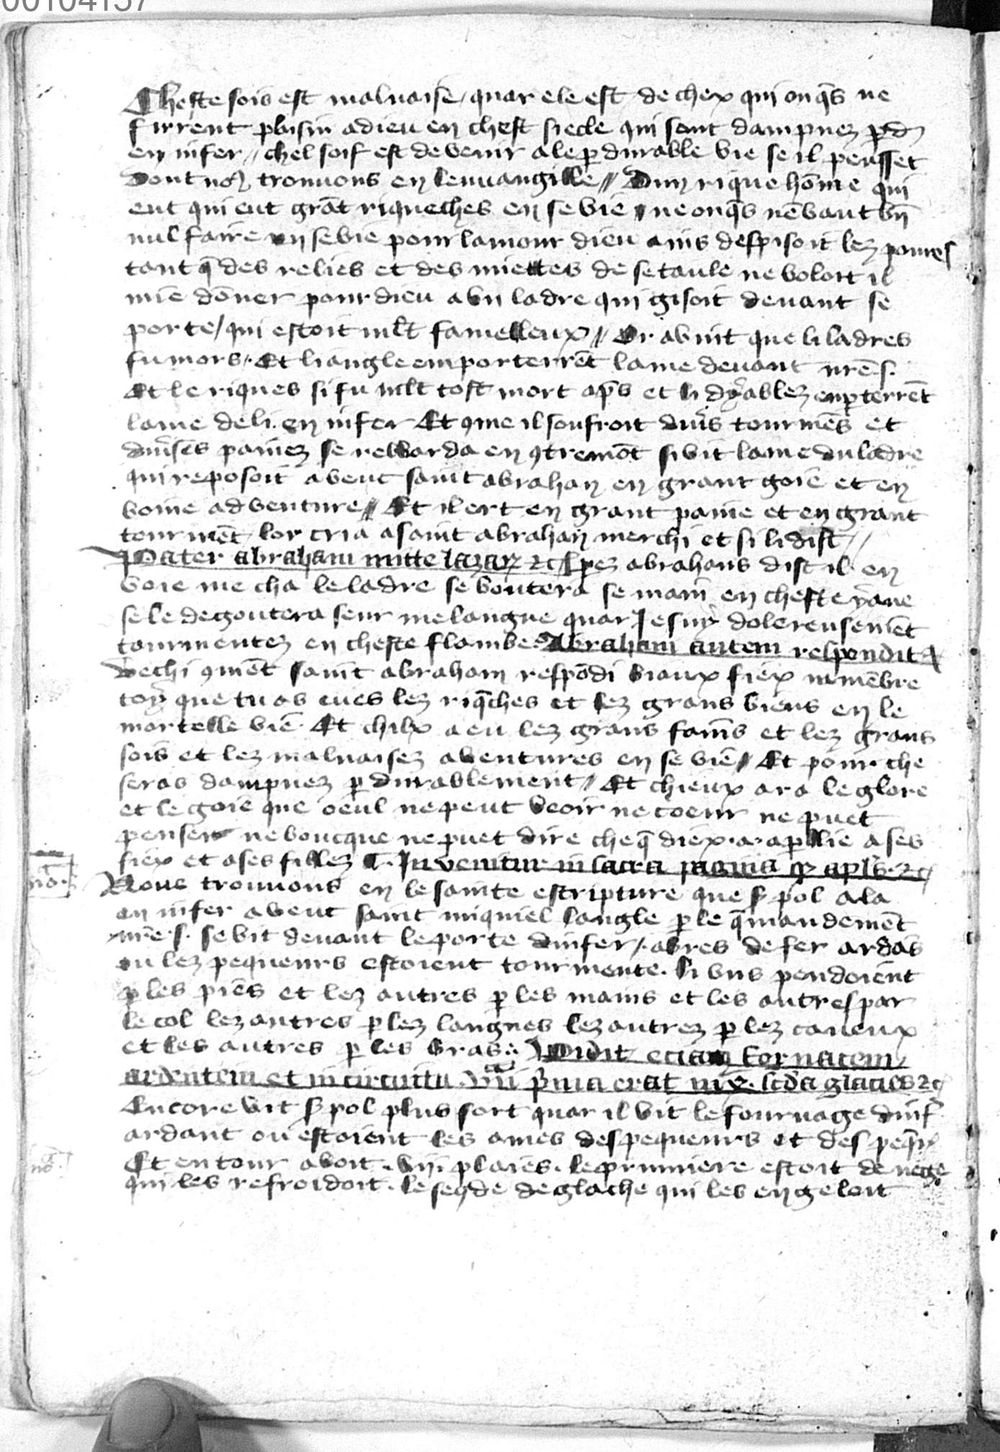 00104157
Cheste sois est malvaise / quar ele est de chex qui onq̄s ne
firrent plaisir a dieu en chest siecle qui sont dampnez p̄d
en infer // chel soif est de venir a le p̄durable vie se il peusset
Dont no9 trouvons en leuvangille // Dun rique hōme qui
ent qui eut grāt riqueches en se vie ne onq̄s nē vaut
nul faire en se vie pour lamour dieu ains despisoit lez poures
tant q̄ des relies et des miettes de se taule ne voloit il
mie dōner pour dieu a vn ladre qui gisoit devant se
porte / qui estoit mlt̄ famelleux // Or avint que li ladres
fu mors . Et li angle emporterrēt lame devant nrē s.
Et le riques si fu mlt̄ tost mort ap̄s et li dyablez enp̄terrēt
lame de li en infer Et 9me il soufroit divs̄ tourmēs et
divs̄es painez se rewarda en 9tremōt si vit lame du ladre
qui reposoit aveuc saint abrahan en grant goie et en
boine adventure // Et il ert en grant paine et en grant
tourmēt lor cria a saint abrahan merchi et si li dist //
Pater abraham mitte lazar̄ 2c pez abrahans dist il en
voie me cha le ladre se boutera se main en cheste yaue
se le degoutera seur me langue quar Je suy dolereusemēt
tourmentez en cheste flambe Abraham autem respondit
Vechi 9mēt saint abraham respōdi biaux fiex mēmbre
toy que tu as eues lez riq̄ches et lez grans biens en le
mortelle vie Et chilx a eu lez grans fains et lez grans
sois et lez malvaisez aventures en se viē // Et pour che
seras dampnez p̄durablement // Et chieux ara le glore
et le goie que oeul ne peut veoir ne coeur ne puet
penser ne boucque ne puet dire che q̄ diex a apllie a ses
fiex et a ses fillez Invenitur in sacra pagina q̄ apl̄s 2c
nō.
Nous trouvons en le sainte escripture que s̄ pol ala
en infer aveuc saint miquiel langle p̄ le q̄mandemēt
nrē s. se vit devant le porte dinfer / abres de fer ardās
ou lez pequeurs estoient tourmente. li uns pendoient
p̄ les piēs et lez autres p̄ les mains et les autres par
le col lez autres p̄ lez langues lez autrez p̄ lez caveux
et les autres p̄ les bras. Vidit eciam fornacem
ardentem et in circuitu vii p̄ma erat nix. scd̄a glacies 2c
Encore vit s̄ pol plus fort quar il vit le fournage dinf̄
ardant ou estoient les ames des pequeurs et des peq̄
nō.
Et entour avoit. vii. plaiēs. le premiere estoit de nege
qui les refroidoit. le seq̄de de glache qui les engeloit